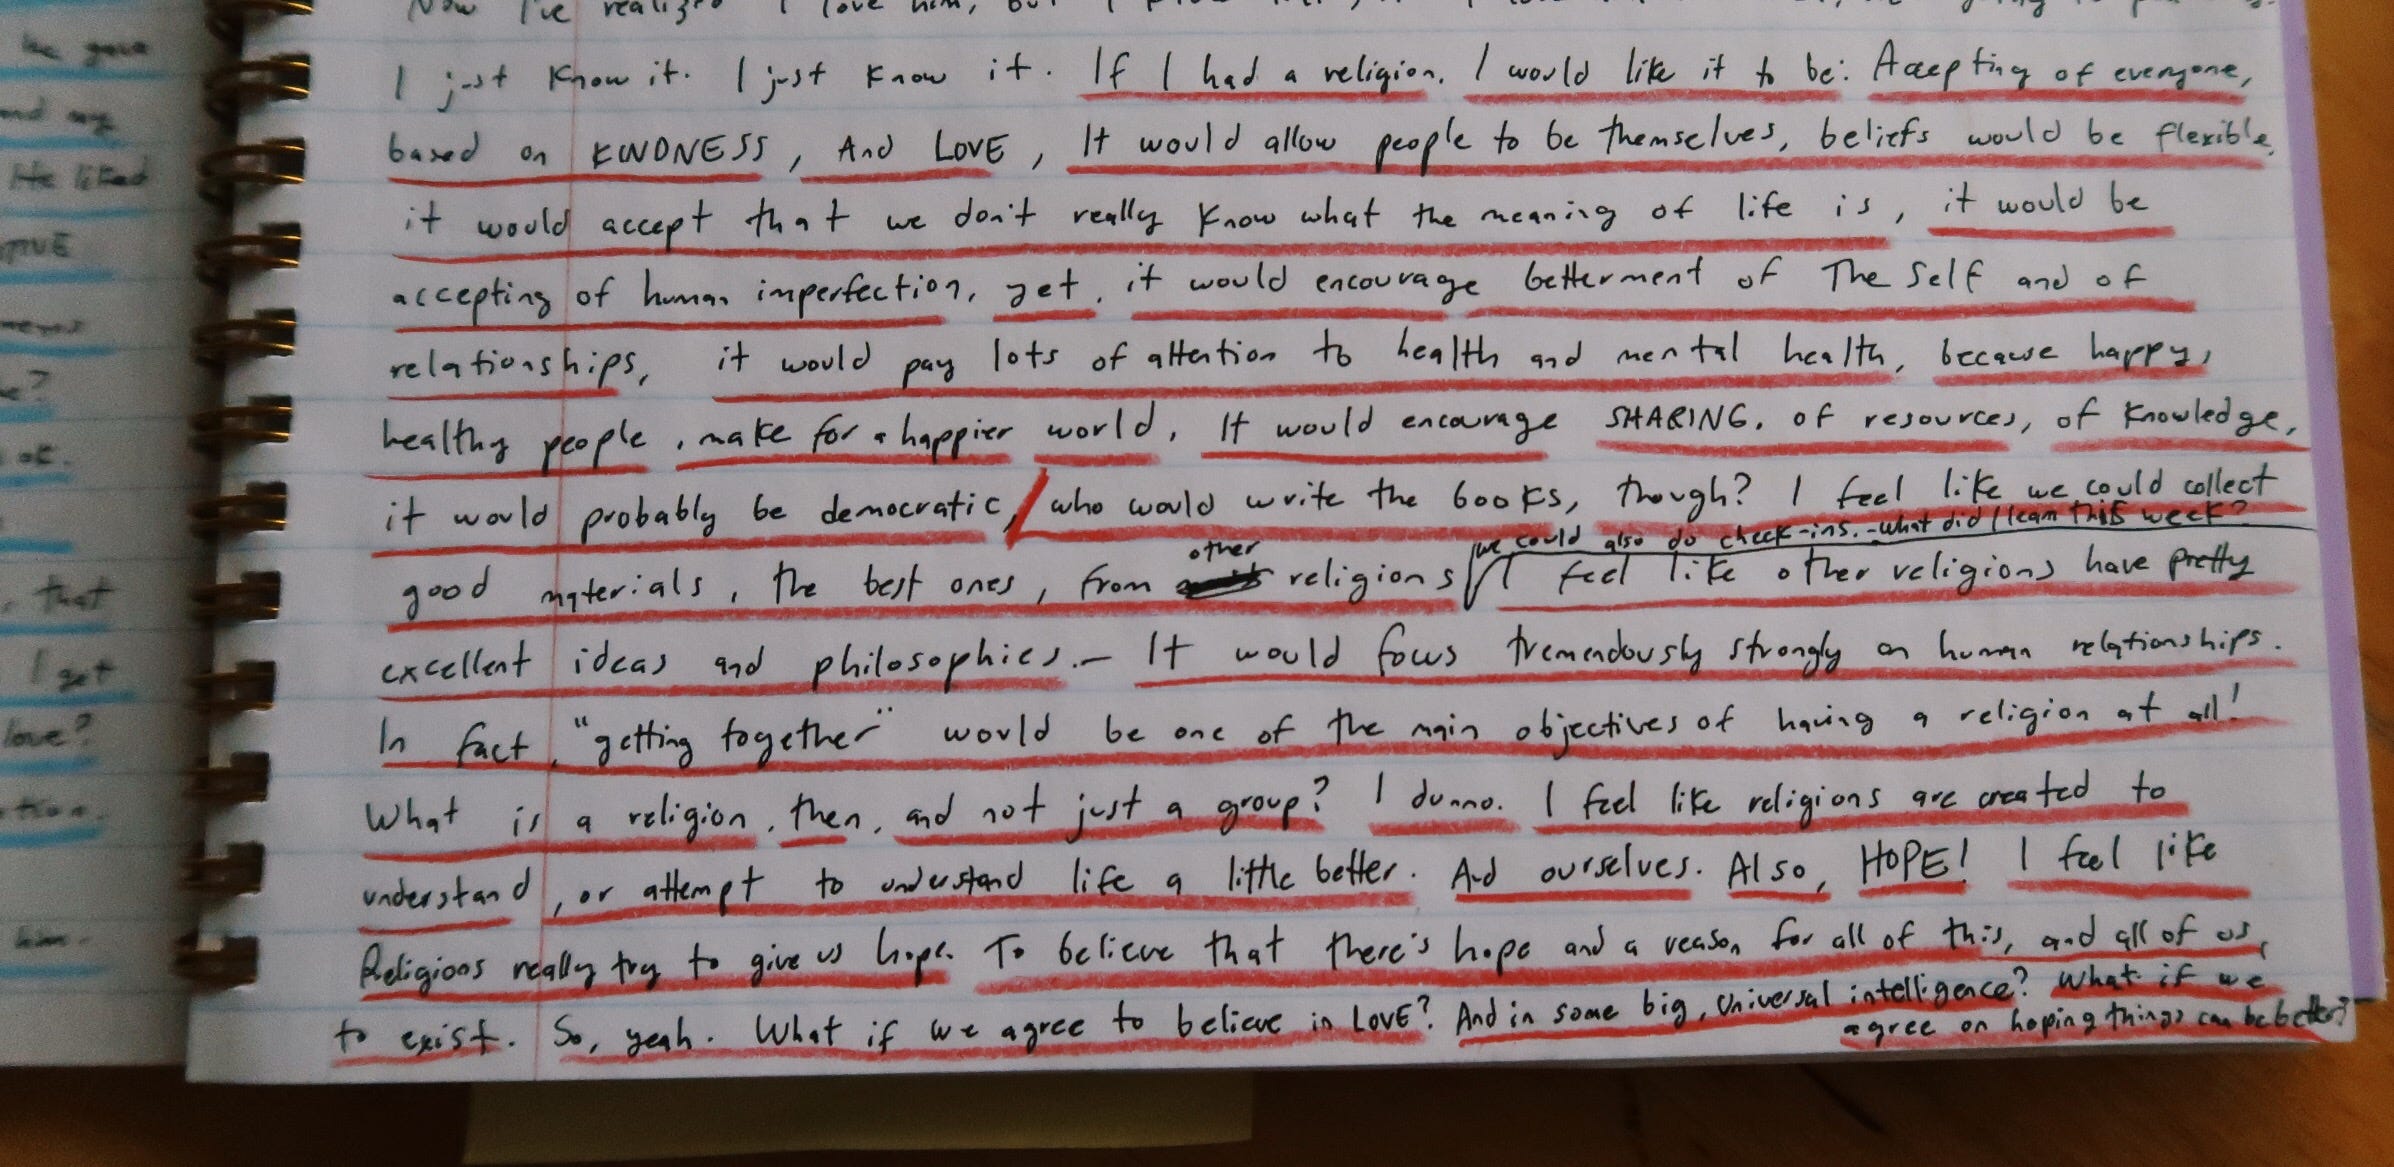 he gave
and my
He liked
e?
ok.
that
I get
love?
him.
Now I've realized I love him, but I
I just know it. I just know it. If I had a religion, I would like it to be: Accepting of everyone,
based on KINDNESS, And LOVE, It would allow people to be themselves, beliefs would be flexible,
it would accept that we don't really know what the meaning of life is, it would be
accepting of human imperfection, yet, it would encourage betterment of The Self and of
relationships, it would pay lots of attention to health and mental health, because happy,
healthy people, make for a happier world. It would encourage SHARING. of resources, of knowledge,
it would probably be democratic, who would write the books, though? I feel like we could collect
we could also do check-ins. - what did I learn this week?
good materials, the best ones, from other religions I feel like other religions have pretty
excellent ideas and philosophies. - It would focus tremendously strongly on human relationships.
In fact, "getting together" would be one of the main objectives of having a religion at all!
What is a religion, then, and not just a group? I dunno. I feel like religions are created to
understand, or attempt to understand life a little better. And ourselves. Also, HOPE! I feel like
Religions really try to give us hope. To believe that there's hope and a reason for all of this, and all of us,
to exist. So, yeah. What if we agree to believe in LOVE? And in some big, Universal intelligence? What if we
agree on hoping things can be better?